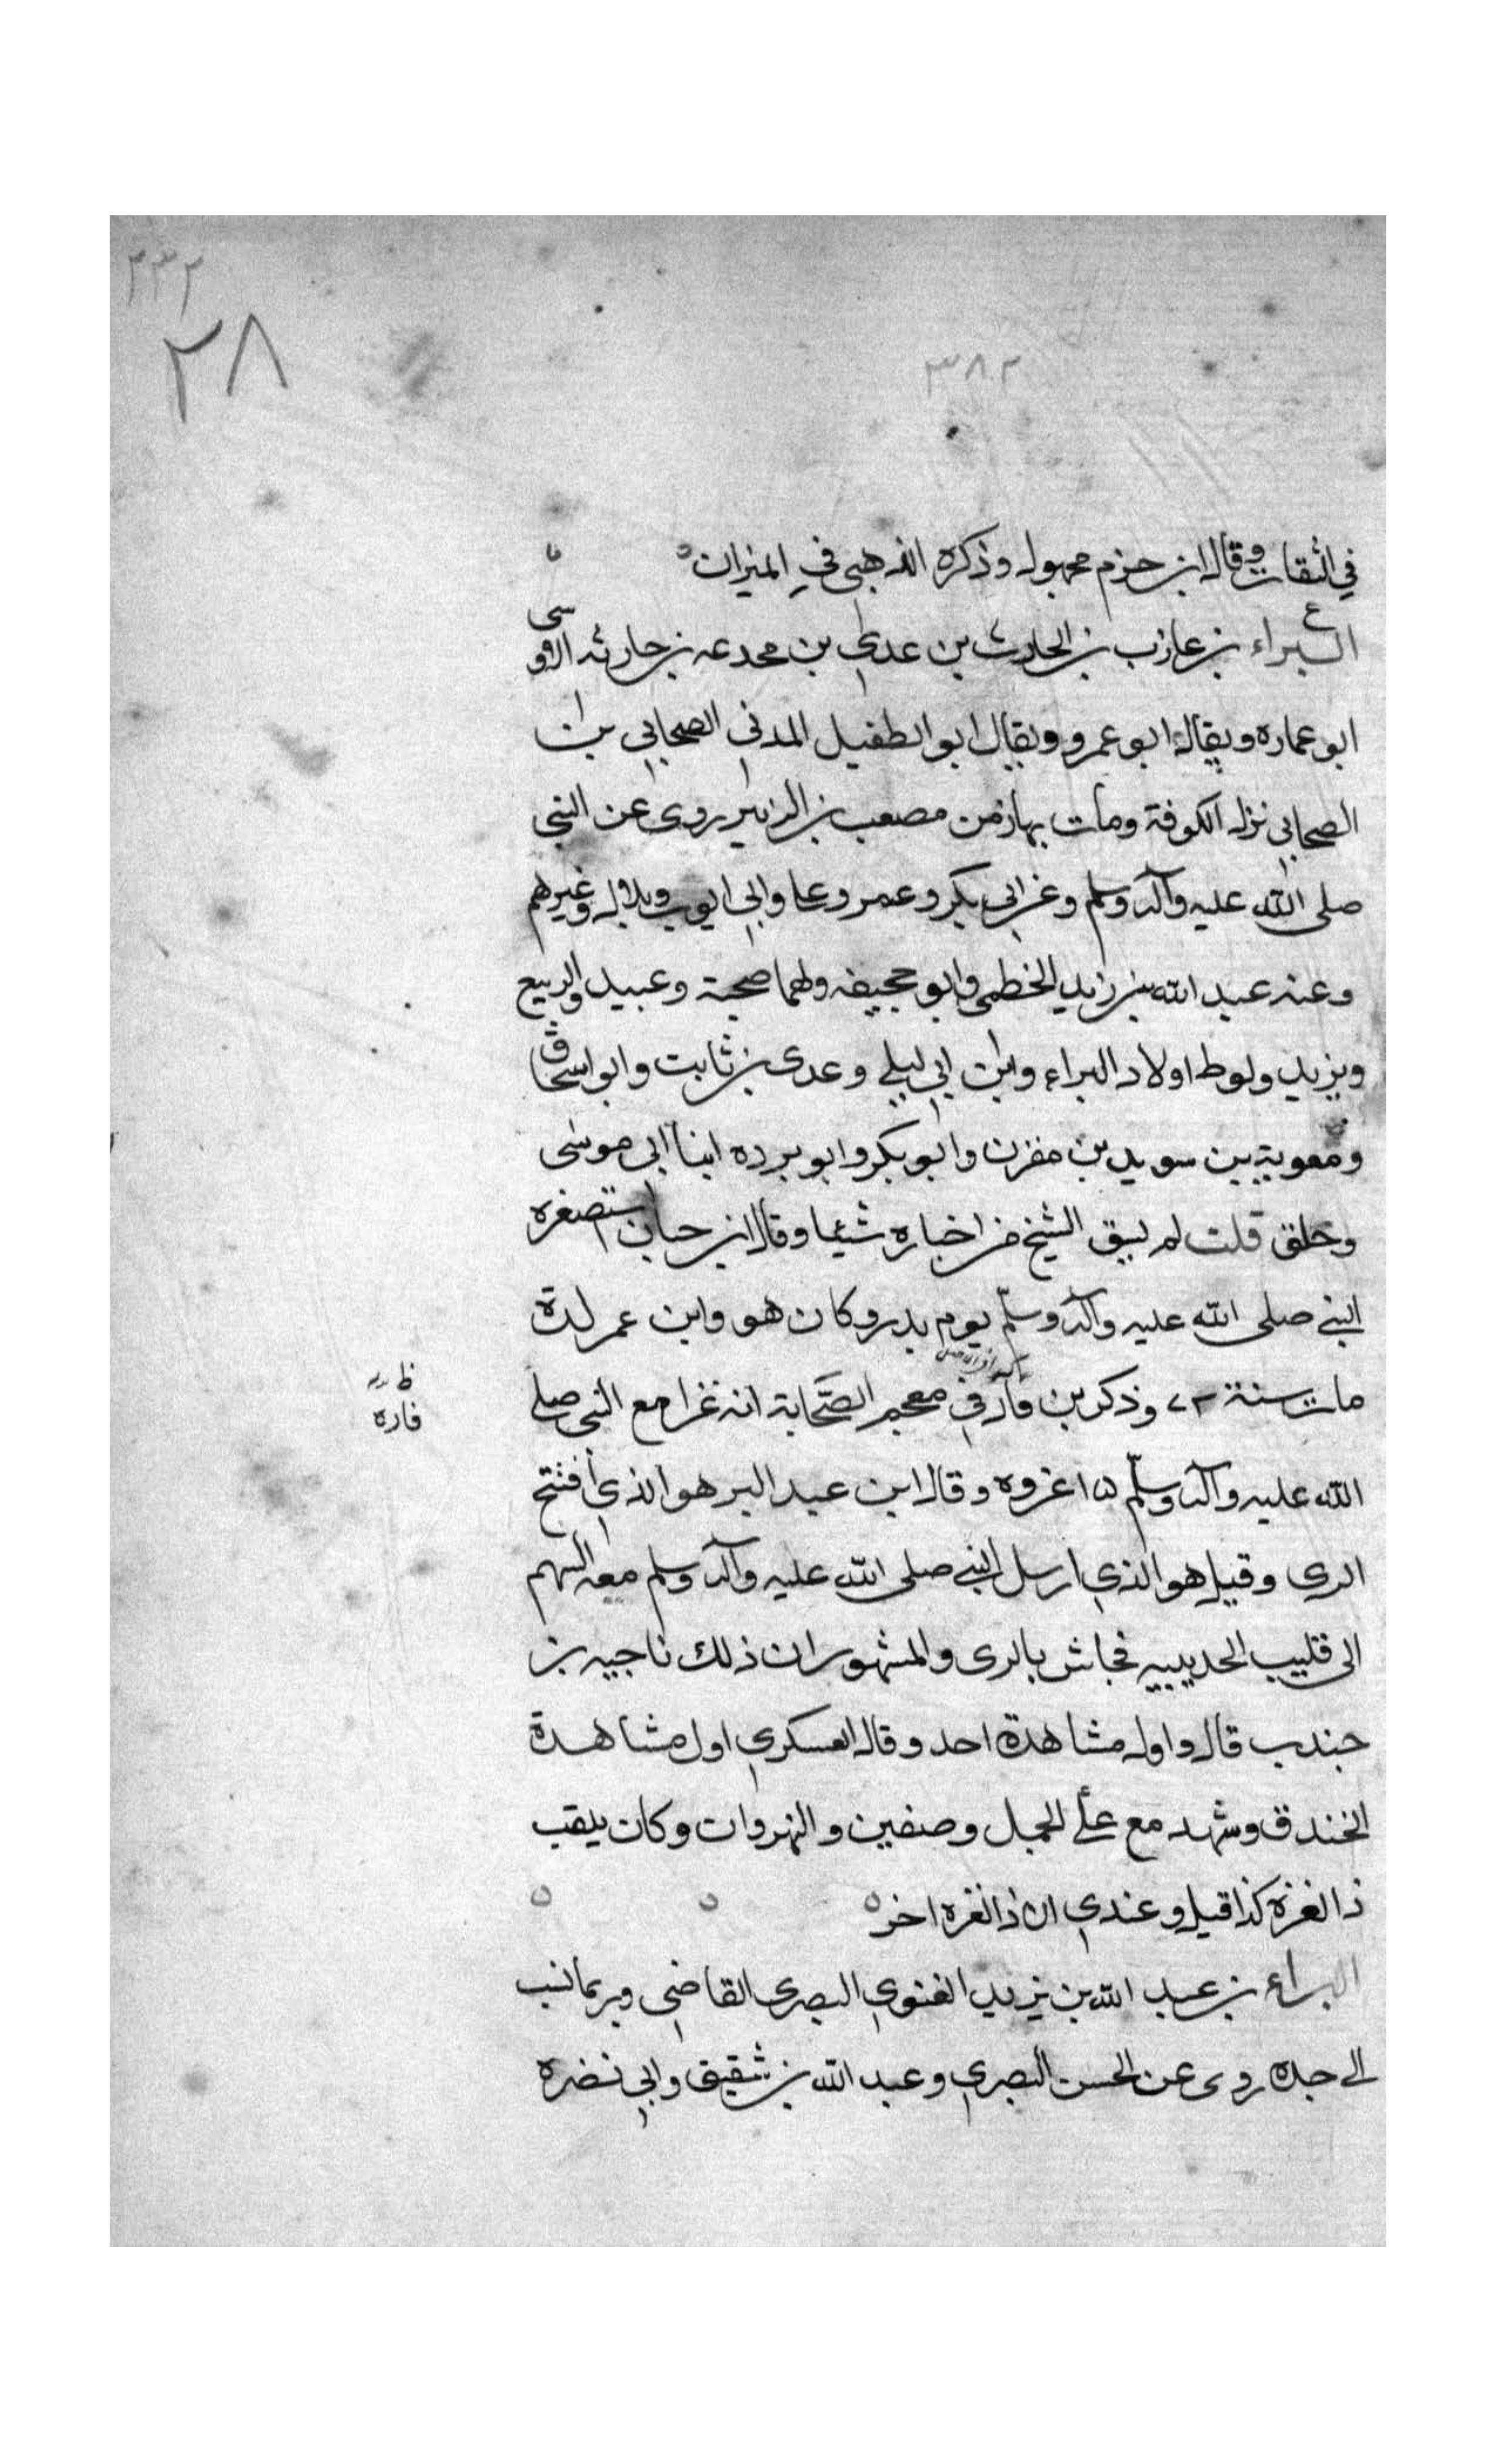 ٢٣٢
٢٨
٣٨٢
في الثقات وقال ابن حزم مجهول وذكره الذهبي في الميزان
ع
البراء بن عازب بن الحارث بن عدي بن مجدعه بن حارثه الاوسي
ابو عماره ويقال ابو عمرو ويقال ابو الطفيل المدني الصحابي بن
الصحابي نزل الكوفة ومات بها زمن مصعب بن الزبير روى عن النبي
صلى الله عليه وآله وسلم وعن ابي بكر وعمر وعلي وابي ايوب وبلال وغيرهم
وعنه عبد الله بن زيد الخطمي وابو جحيفه ولهما صحبة وعبيد والربيع
ويزيد ولوط اولاد البراء وابن ابي ليلى وعدى بن ثابت وابو اسحاق
ومعوية بن سويد بن مقرن وابو بكر وابو برده ابنا ابي موسى
وخلق قلت لم يسق الشيخ من اخباره شيئا وقال ابن حبان استصغره
النبي صلى الله عليه وآله وسلم يوم بدر وكان هو وابن عمر لدة
مات سنة ٧٢ وذكر بن في معجم الصحابة انه غزا مع النبي صلى
ظ
فاره
الله عليه وآله وسلم ١٥ غزوه وقال ابن عبد البر هو الذي افتتح
الرى وقيل هو الذي ارسل النبي صلى الله عليه وآله وسلم معه السهم
الى قليب الحديبيه فجاش بالرى والمشهور ان ذلك ناجيه بن
جندب قال واول مشاهدة احد وقال العسكري اول مشاهدة
الخندق وشهد مع علي الجمل وصفين والنهروان وكان يلقب
ذا الغزة كذا قيل وعندي ان ذا الغره اخر
البراء بن عبد الله بن يزيد الغنوي البصرى القاضي وربما نسب
الى جده روى عن الحسن البصري وعبد الله بن شقيق وابي نضره